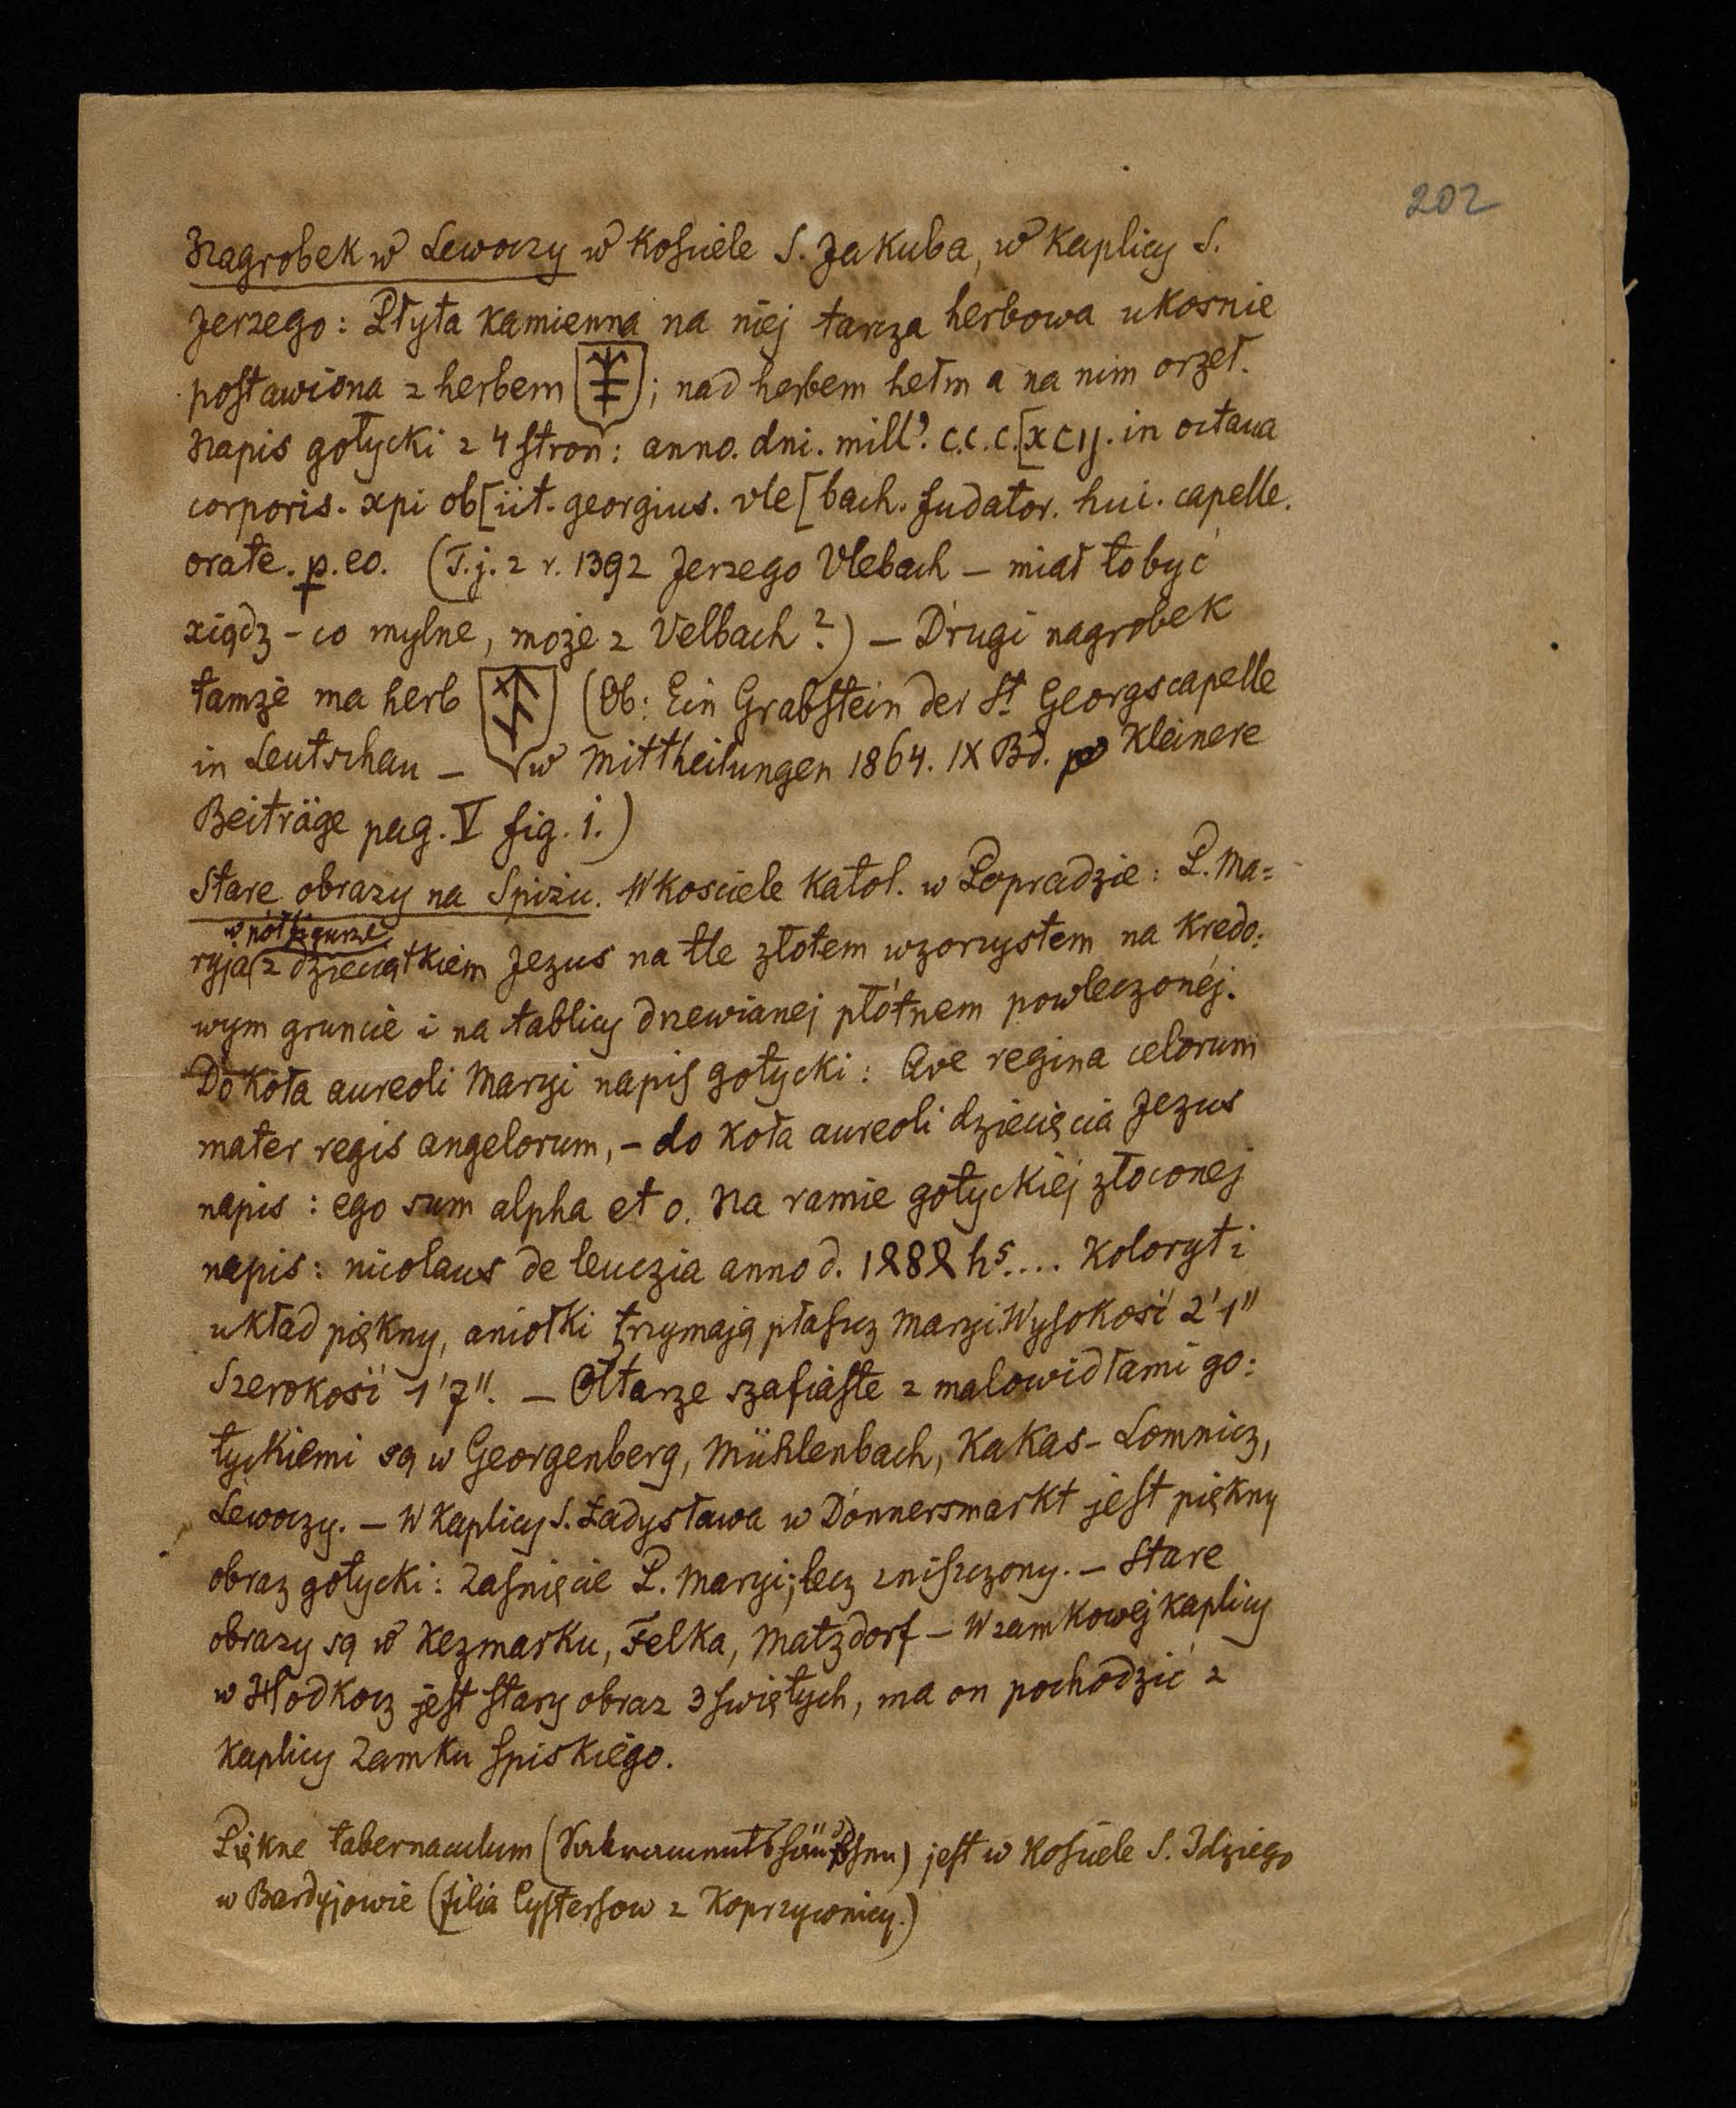 202
Nagrobek w Lewoczy w Kosciele S. Jakuba, w Kaplicy S.
Jerzego: Płyta kamienna na niéj tarcza herbowa ukosnie
postawiona z herbem ; nad herbem hełm a na nim orzeł.
Napis gotycki z 4 stron: anno. dni. mill'. c.c.c.[xcij. in octaua
corporis. xpi ob[iit. georgius. vle[bach. fudator. hui. capelle.
orate. p. eo. (T.j. z r. 1392 Jerzego Vlebach – miał to być
xiądz – co mylne, może z Velbach?) – Drugi nagrobek
tamże ma herb (Ob: Ein Grabstein der St. Georgscapelle
in Leutschau – w Mittheilungen 1864. IX Bd. Kleinere
Beiträge pag. V fig. 1.)
Stare obrazy na Spiżu. W kosciele katol. w Popradzie: P. Ma=
w półfigurze
ryja z dzieciątkiem Jezus na tle złotem wzorzystem na kredo:
wym gruncie i na tablicy drzewianej płótnem powleczonéj.
Do koła aureoli Maryi napis gotycki: Ave regina celorum
mater regis angelorum, – do koła aureoli dziecięcia Jezus
napis: ego sum alpha et o. Na ramie gotyckiéj złoconej
napis: nicolaus de leuczia anno d. 1888 hs.... Koloryt i
układ piękny, aniołki trzymają płaszcz Maryi. Wysokość 2'1"
Szerokość 1'7". – Ołtarze szafiaste z malowidłami go:
tyckiemi są w Georgenberg, Mühlenbach, Kakas-Lomnicz,
Lewoczy. – W kaplicy S. Ładysława w Donnersmarkt jest piękny
obraz gotycki: Zasnięcie P. Maryi; lecz zniszczony. – Stare
obrazy są w Kezmarku, Felka, Matzdorf – W zamkowej kaplicy
w Hodkocz jest stary obraz 3 świętych, ma on pochodzić z
kaplicy Zamku Spiskiégo.
Piękne tabernaculum (Sakramentshäuschen) jest w Kosciele S. Idziego
w Bardyjowie (filia Cystersow z Koprzywnicy.)